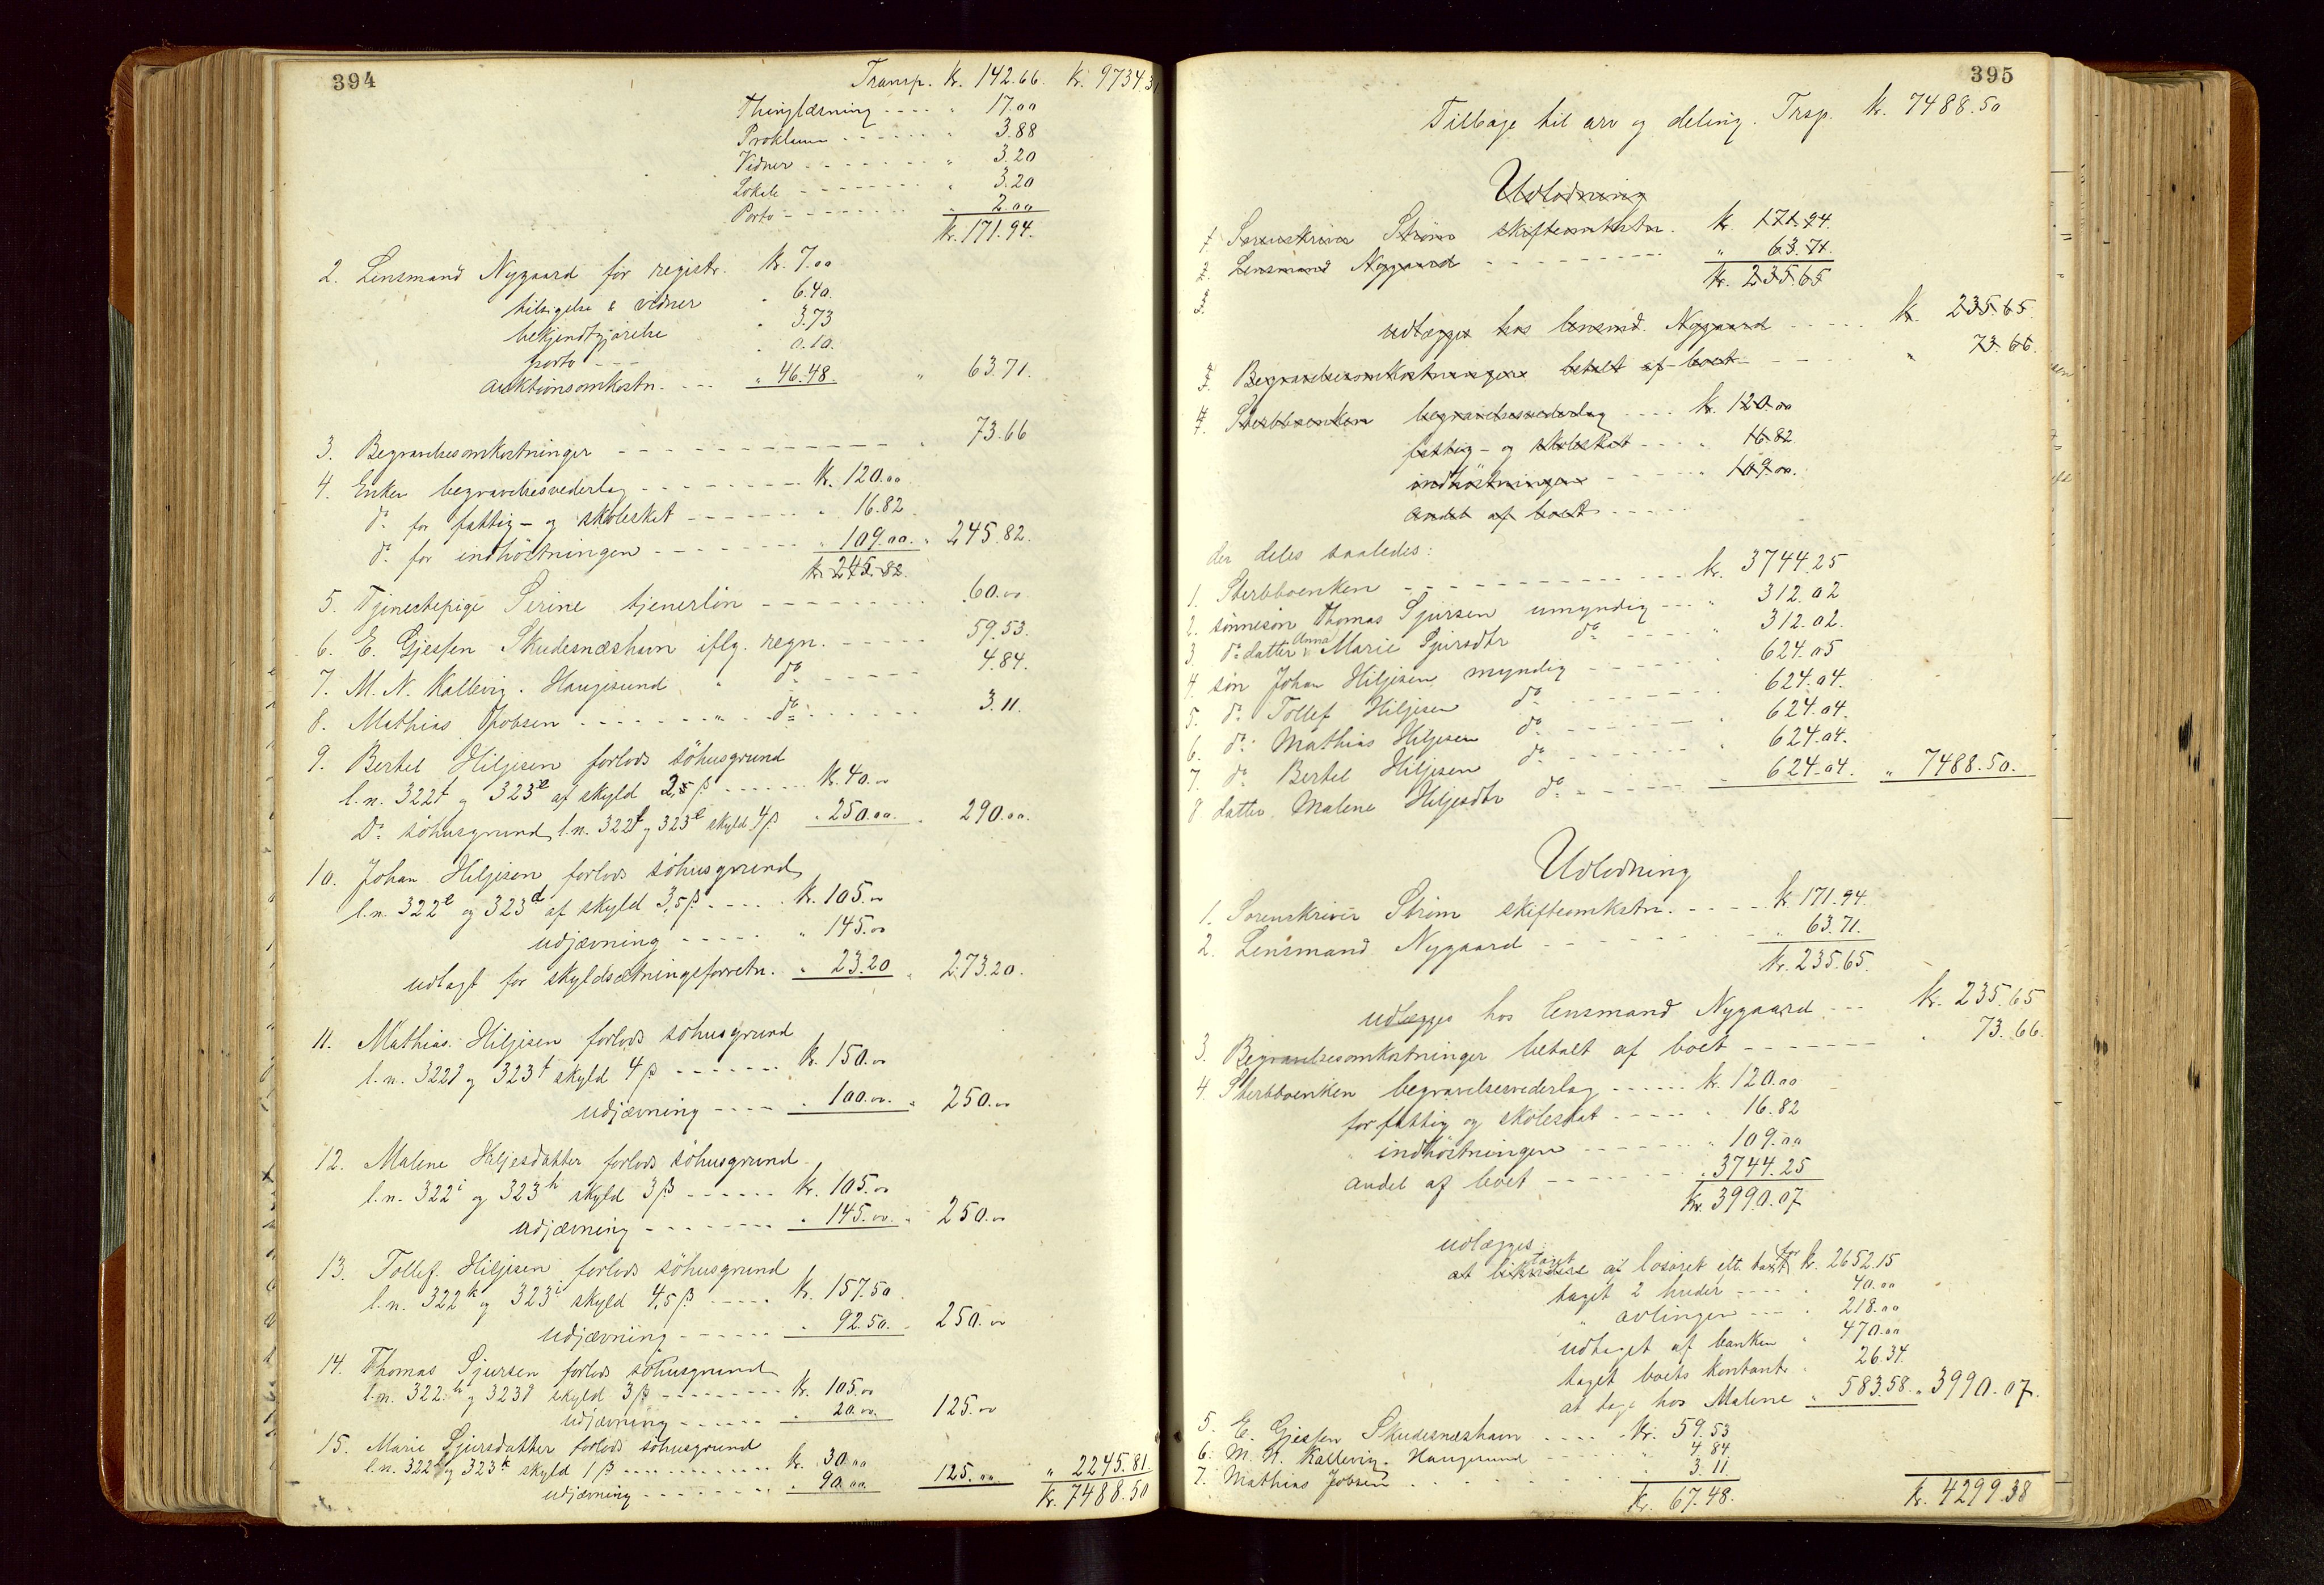 394
Transp. Kr. 142.66. Kr. 9734.31
Thinglæsning - - - - " 17.00
Proklama - - - - - - " 3.88
Vidner - - - - - - - " 3.20
Lokale - - - - - - - " 3.20
Porto - - - - - - - " 2.00
Kr. 171.94.
2. Lensmand Nygaard for registr. Kr. 7.00
tilsigelse & vidner " 6.40.
bekjendtgjørelse " 3.73
porto - - - " 0.10.
auktionsomkostn. - - - " 46.48. " 63.71.
3. Begravelsesomkostninger - - - - - - - - - - - " 73.66
4. Enken begravelsesvederlag - - - - - - - - Kr. 120.00
do for fattig- og skoleskat - - - - - - " 16.82
do for indhöstningen - - - - - - - " 109.00. " 245.82.
Kr. 245.82.
5. Tjenestepige Serine tjenerlön - - - - - - - - - 60.00
6. E. Gjessen Skudesnæshavn iflg. regn. - - - - - 59.53.
7. M. N. Kallevig. Haugesund " do - - - - - - 4.84.
8. Mathias Jobsen - - - - - - - " - - do - - - - - - 3.11.
9. Bertel Hiljesen forlods söhusgrund
l.n. 322f og 323e af skyld 2,5 β - - - - - - Kr. 40.00
Do söhusgrund l.n. 322f og 323e skyld 4 β " 250.00. " 290.00.
10. Johan Hiljesen forlods söhusgrund
l.n. 322e og 323d af skyld 3,5 β - - - - . Kr. 105.00
udjævning - - - - - " 145.00
udlagt for skyldsætningsforretn. " 23.20 " 273.20.
11. Mathias Hiljesen forlods söhusgrund
l.n. 322g og 323f skyld 4 β - - - - - - - Kr. 150.00
udjævning - - - - " 100.00. " 250.00
12. Malene Hiljesdatter forlods söhusgrund
l.n. 322i og 323h skyld 3 β - - - - - - Kr. 105.00
udjævning - - - - - - - " 145.00. " 250.00
13. Tollef Hiljesen forlods söhusgrund
l.n. 322k og 323i skyld 4,5 β - - - - - Kr. 157.50
udjævning - - - - - - " 92.50. " 250.00
14. Thomas Sjursen forlods söhusgrund
l.n. 322h og 323g skyld 3 β - - - - - - - - Kr. 105.00
udjævning - - - - - " 20.00. 125.00
15. Marie Sjursdatter forlods söhusgrund
l.n. 322l og 323k skyld 1 β - - - - - - - - - - Kr. 30.00
udjævning - - - - - - - - " 90.00. 125.00 " 2245.81.
Kr. 7488.50
395
Tilbage til arv og deling. Trsp. Kr. 7488.50
Udlodning
1. Sorenskriver Strøm skifteomkstn. Kr. 171.94.
2. Lensmand Nygaard - - - - - - - - - " 63.71.
Kr. 235.65
3.
udlægges hos lensmd. Nygaard - - - - - Kr. 235.65.
3. Begravelsesomkostningerne betalt af boet - - - - - " 73.66.
4. Sterbboenken begravelsesvederlag - - - - Kr. 120.00
fattig- og skoleskat - - - - " 16.82
indhöstningen - - - - - " 109.00.
andel af boet - - - - -
der deles saaledes:
1. Sterbboenken - - - - - - - - - - - - Kr. 3744.25
2. sönnesön Thomas Sjursen umyndig - - - " 312.02
3. do datter Anna Marie Sjursdtr do - - - - - " 312.02.
4. sön Johan Hiljesen myndig - - - - - - " 624.05
5. do Tollef Hiljesen do - - - - - - - - 624.04.
6. do Mathias Hiljesen do - - - - - - - " 624.04.
7. do Bertel Hiljesen do - - - - - - - " 624.04.
8 datter Malene Hiljesdtr do - - - - - - " 624.04. " 7488.50.
Udlodning
1. Sorenskriver Strøm skifteomkstn. - - - - - Kr. 171.94.
2. Lensmand Nygaard - - - - - - - - - " 63.71.
Kr. 235.65.
udlægges hos lensmand Nygaard - - - Kr. 235.65
3. Begravelsesomkostninger betalt af boet - - - - - - - " 73.66.
4. Sterbboenken begravelsesvederlag - - - - - - Kr. 120.00
for fattig og skoleskat - - - - - " 16.82
" indhöstningen - - - - - - - " 109.00
andel af boet - - - - - - - " 3744.25
Kr. 3990.07
udlægges:
taget af lösöret eft. takst for Kr. 2652.15
taget 2 huder - - - - " 40.00
" avlingen - - - " 218.00
udtaget af banken " 470.00
taget boets kontant. " 26.34.
at tage hos Malene " 583.58. " 3990.07.
5. E. Gjessen Skudesnæshavn - - - - Kr. 59.53
6. M. N. Kallevig. Haugesund - - - - - - " 4.84.
7. Mathias Jobsen - - - - - - - - " 3.11.
Kr. 67.48.
Kr. 4299.38